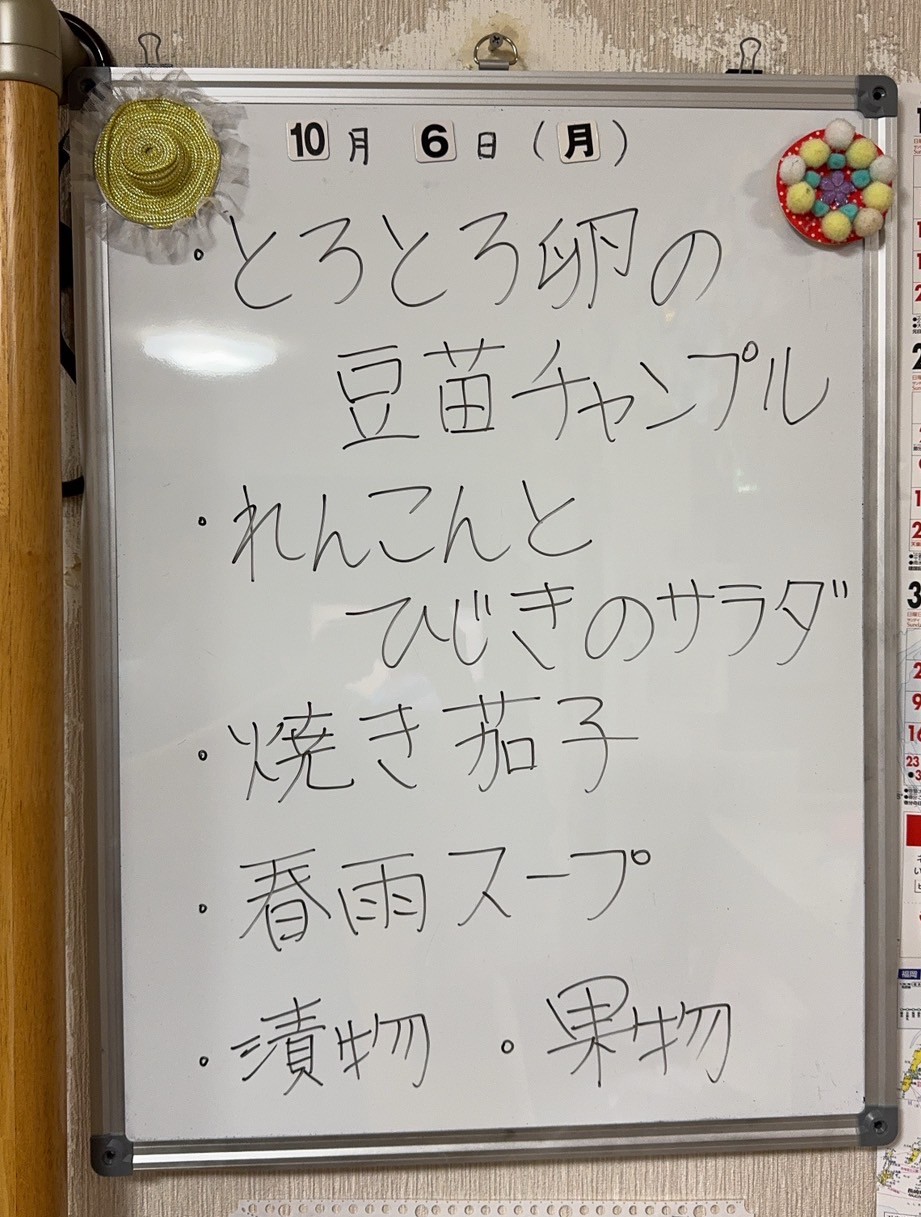 10月 6日(月)
・とろとろ卵の
豆苗チャンプル
・れんこんと
ひじきのサラダ
・焼き茄子
・春雨スープ
・漬物 ・果物